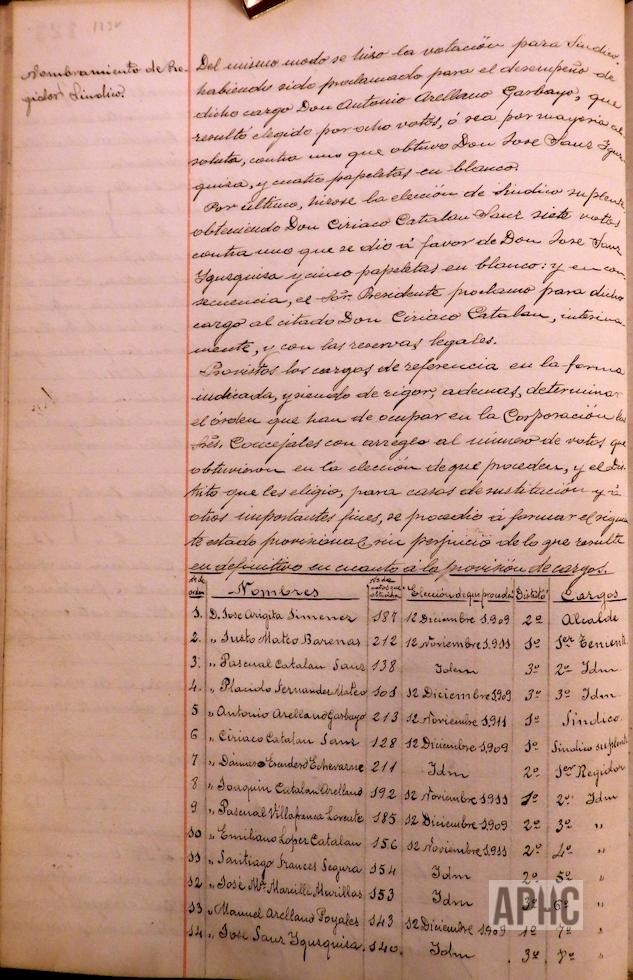 Nombramiento de Re-
gidor Sindico.
Del mismo modo se hizo la votación para Sindico,
habiendo sido proclamado para el desempeño de
dicho cargo Don Antonio Arellano Garbayo, que
resultó elegido por ocho votos, ó sea por mayoria ab-
soluta, contra uno que obtuvo Don Jose Sanz Ygus-
quisa, y cuatro papeletas en blanco.
Por último, hizose la elección de Sindico suplente
obteniendo Don Ciriaco Catalan Sanz siete votos
contra uno que se dio á favor de Don Jose Sanz
Ygusquisa y cinco papeletas en blanco: y en con-
secuencia, el Sor. Presidente proclamo para dicho
cargo al citado Don Ciriaco Catalan, interina-
mente, y con las reservas legales.
Provistos los cargos de referencia en la forma
indicada, y siendo de rigor, ademas, determinar
el órden que han de ocupar en la Corporación los
Sres. Concejales con arreglo al número de votos que
obtuvieron en la elección de que proceden, y el Dis-
trito que les eligio, para casos de sustitución y á
otros importantes fines, se procedió á formar el siguien-
te estado provisional, sin perjuicio de lo que resulte
en definitivo en cuanto á la provisión de cargos.
Nº de orden Nombres Nº de votos que obtuvo Elección de que procede Distrito Cargos
1. D. Jose Arigita Jimenez 187 12 Diciembre 1909 2º Alcalde
2. " Justo Mateo Barenas 212 12 Noviembre 1911 1º 1er Tenient
3. " Pascual Catalan Sanz 138 Idem 3º 2º Idm
4. " Placido Fernandez Mateo 101 12 Diciembre 1909 3º 3º Idm
5 " Antonio Arellano Garbayo 213 12 Noviembre 1911 1º Sindico
6 " Ciriaco Catalan Sanz 128 12 Diciembre 1909 1º Sindico suplente
7 " Dámaso Escudero Echevarne 211 Idm 2º 1er Regidor
8 " Joaquin Catalan Arellano 192 12 Noviembre 1911 1º 2º Idm
9 " Pascual Villafranca Lorente 185 12 Diciembre 1909 2º 3º "
10 " Emiliano Lopez Catalan 156 12 Noviembre 1911 2º 4º "
11 " Santiago Frances Segura 154 Idm 2º 5º "
12 " José Mª Marcilla Murillas 153 Idm 3º 6º "
13 " Manuel Arellano Poyales 143 12 Diciembre 1909 1º 7º "
14 " Jose Sanz Ygusquisa 140 Idm 3º 7º "
APHC